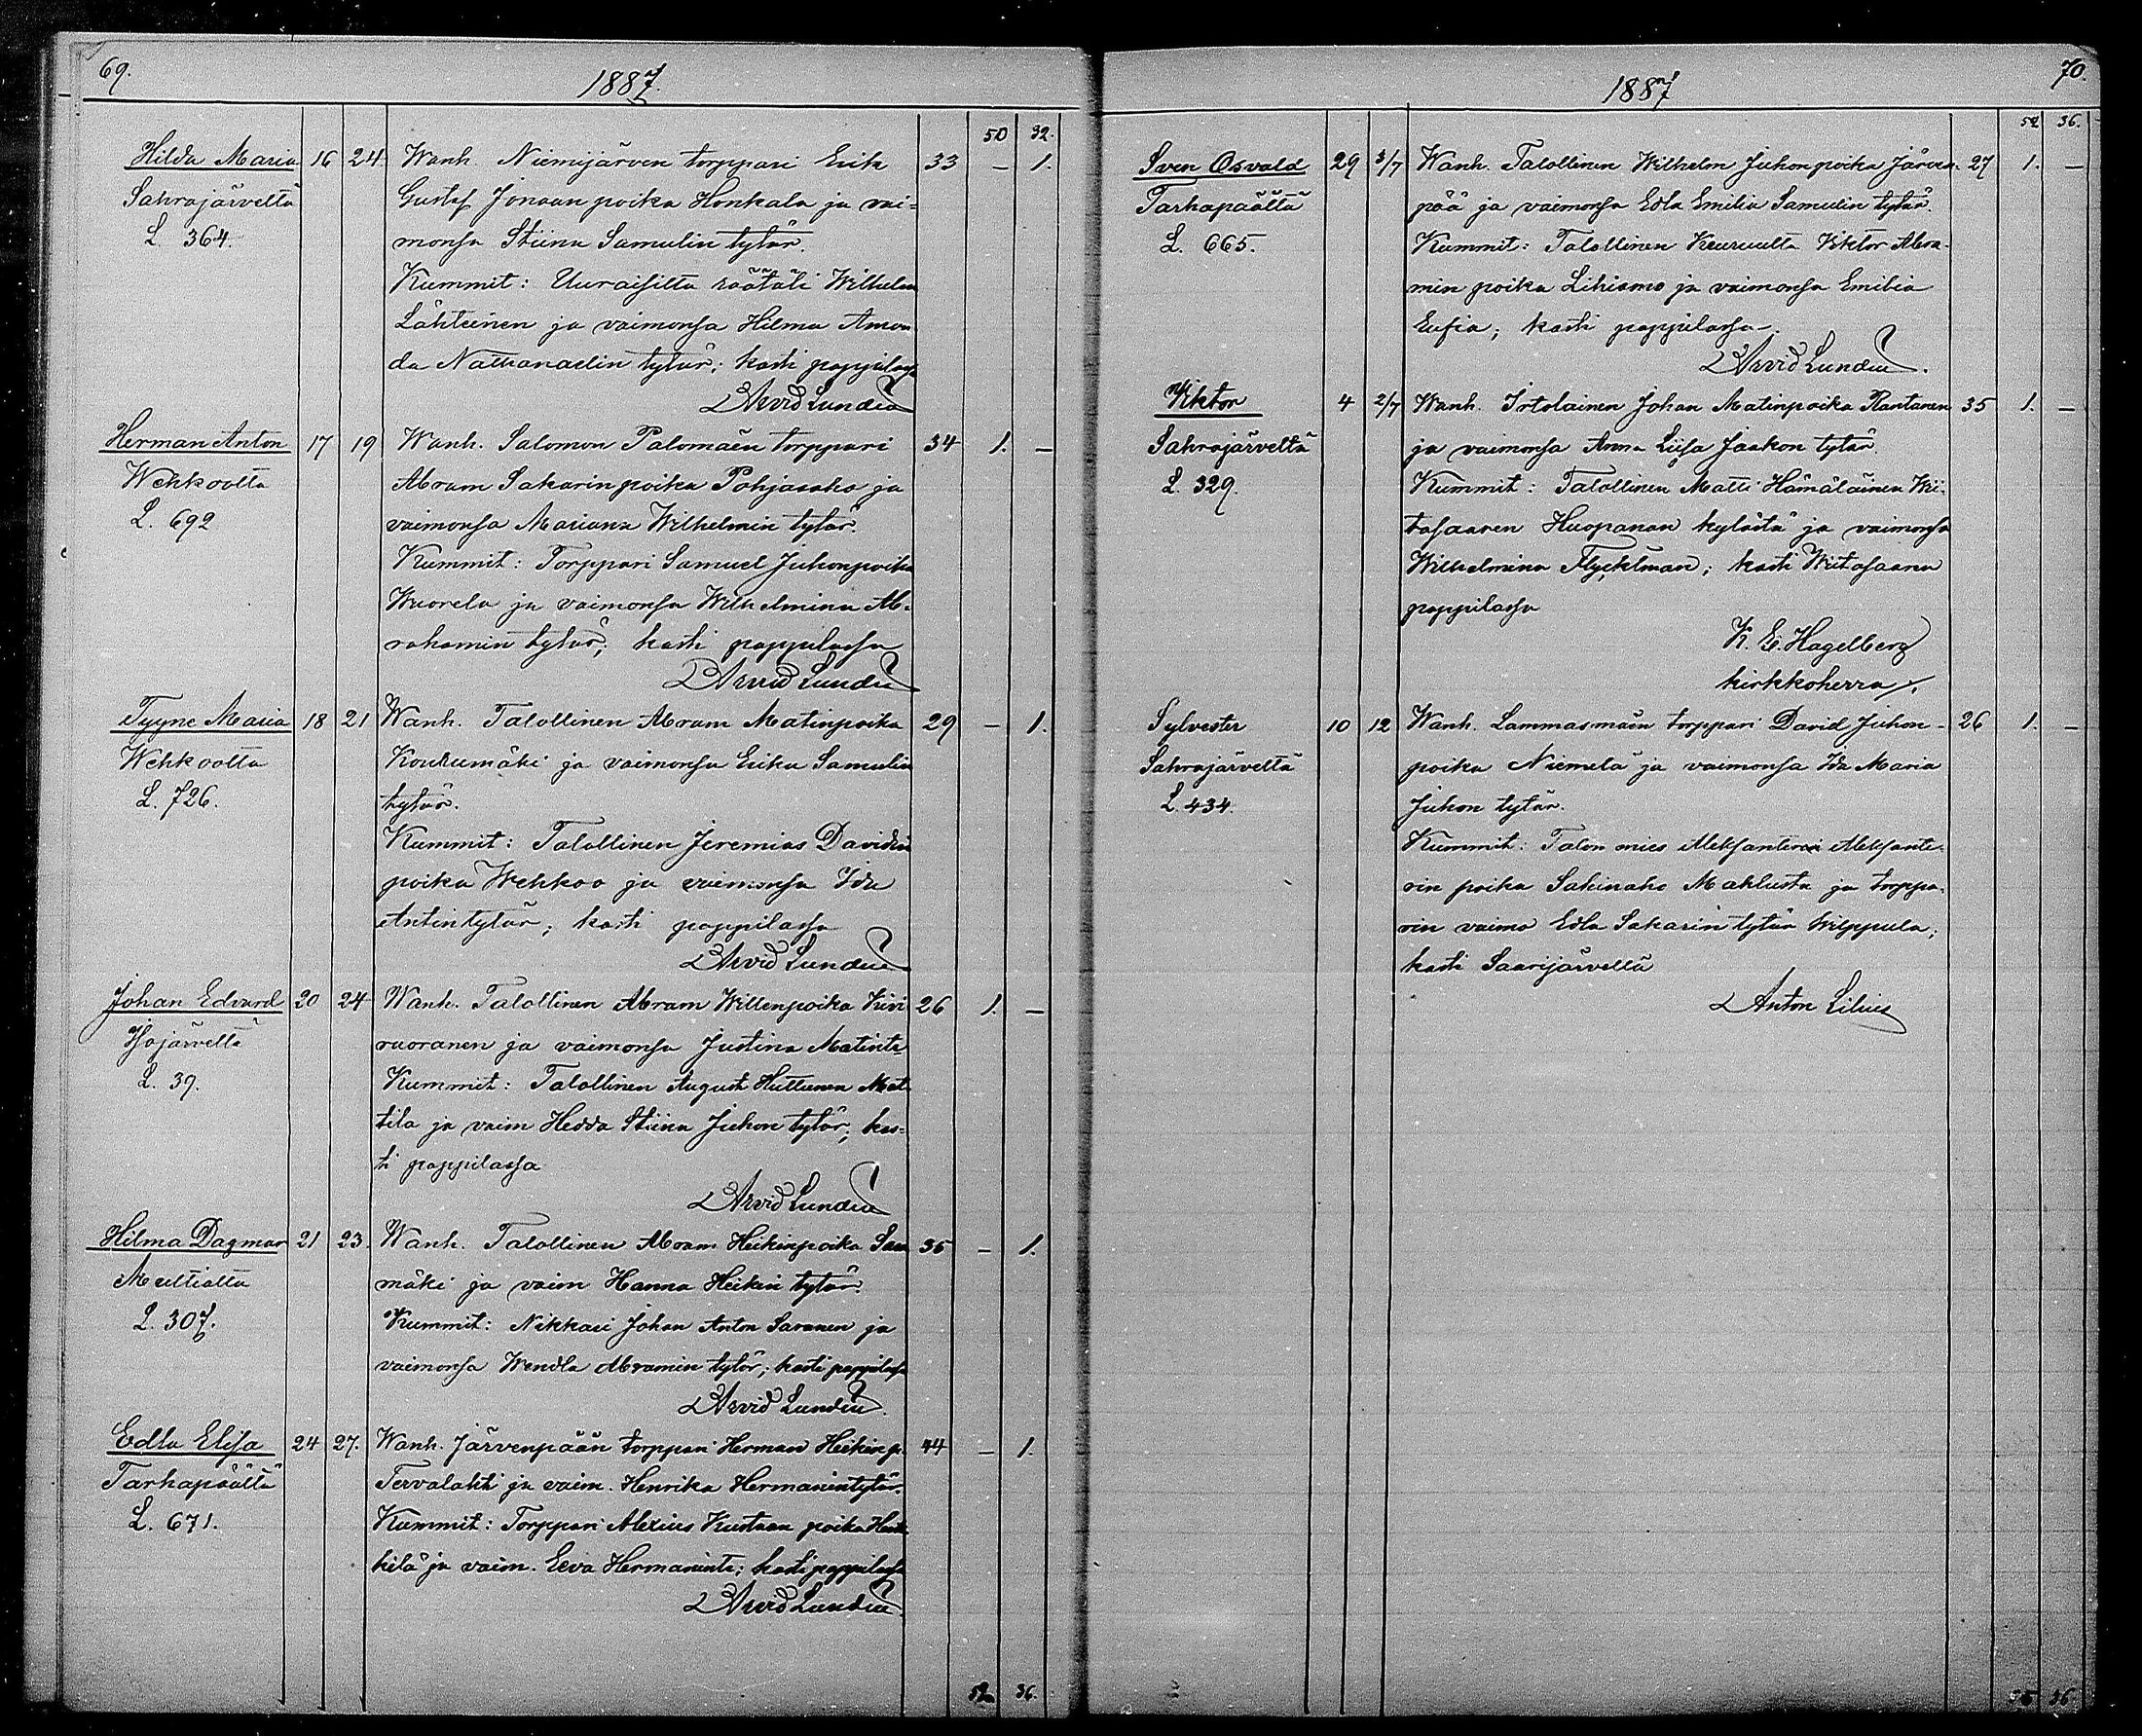 69.
1887.
50 32.
Hilda Maria 16 24 Wanh. Niemijärven torppari Erik 33 — 1.
Sahrajärveltä Gustaf Jonaan poika Honkala ja vai-
L. 364. monsa Stiina Samulin tytär.
Kummit: Uuraisilta räätäli Wilhelm
Lähteinen ja vaimonsa Hilma Aman
da Nathanaelin tytär; kasti pappilassa
Arvid Lundén
Herman Anton 17 19 Wanh. Salomon Palomäen torppari 34 1. —
Wehkoolta Abram Sakarin poika Pohjasaho ja
L. 692 vaimonsa Mariana Wilhelmin tytär.
Kummit: Torppari Samuel Juhonpoika
Wuorela ja vaimonsa Wilhelmina Ab-
rahamin tytär; kasti pappilassa
Arvid Lundén
Tyyne Maria 18 21 Wanh. Talollinen Abram Matinpoika 29 — 1.
Wehkoolta Koukumäki ja vaimonsa Erika Samulin
L. 726. tytär.
Kummit: Talollinen Jeremias Davidin
poika Wehkoo ja vaimonsa Ida
Antintytär; kasti pappilassa
Arvid Lundén
Johan Edvard 20 24 Wanh. Talollinen Abram Willenpoika Kivi 26 1. —
Isojärveltä vuoranen ja vaimonsa Justina Matint.
L. 39. Kummit: Talollinen August Huttunen Mat
tila ja vaim Hedda Stiina Juhon tytär; kas-
ti pappilassa
Arvid Lundén
Hilma Dagmar 21 23. Wanh. Talollinen Abram Heikinpoika 35 — 1.
Multialta mäki ja vaim Hanna Heikin tytär.
L. 307. Kummit: Nikkari Johan Anton Saranen ja
vaimonsa Wendla Abramin tytär; kasti pappilassa
Arvid Lundén
Edla Elisa 24 27. Wanh. Järvenpään torppari Herman Heikin p. 44 — 1.
Tarhapäältä Tervalahti ja vaim. Henrika Hermanintytär.
L. 671. Kummit: Torppari Alexius Kustaan poika
kilä ja vaim. Eeva Hermanint.; kasti pappilassa
Arvid Lundén
52 36.
70.
1887
52 36.
Sven Osvald 29 3/7 Wanh. Talollinen Wilhelm Juhon poika Järven- 27 1. —
Tarhapäältä pää ja vaimonsa Edla Emilia Samulin tytär.
L. 665. Kummit: Talollinen Keuruulta Viktor Abra-
min poika Lihiamo ja vaimonsa Emilia
Eufia; kasti pappilassa.
Arvid Lundén.
Viktor 4 2/7 Wanh. Irtolainen Johan Matinpoika Rantanen 35 1. —
Sahrajärveltä ja vaimonsa Anna Liisa Jaakon tytär.
L. 329. Kummit: Talollinen Matti Hämäläinen Wii-
tasaaren Huopanan kylästä ja vaimonsa
Wilhelmina Flycktman; kasti Wiitasaaren
pappilassa
K. E. Hagelberg
kirkkoherra
Sylvester 10 12 Wanh. Lammasmäen torppari David Juhon- 26 1. —
Sahrajärveltä poika Niemelä ja vaimonsa Ida Maria
L. 434. Juhon tytär.
Kummit: Talon mies Aleksanteri Aleksante-
rin poika Sakinaho Mahlusta ja torppa-
rin vaimo Edla Sakarin tytär Wilppula;
kasti Saarijärvellä
Anton Lilius
55 36